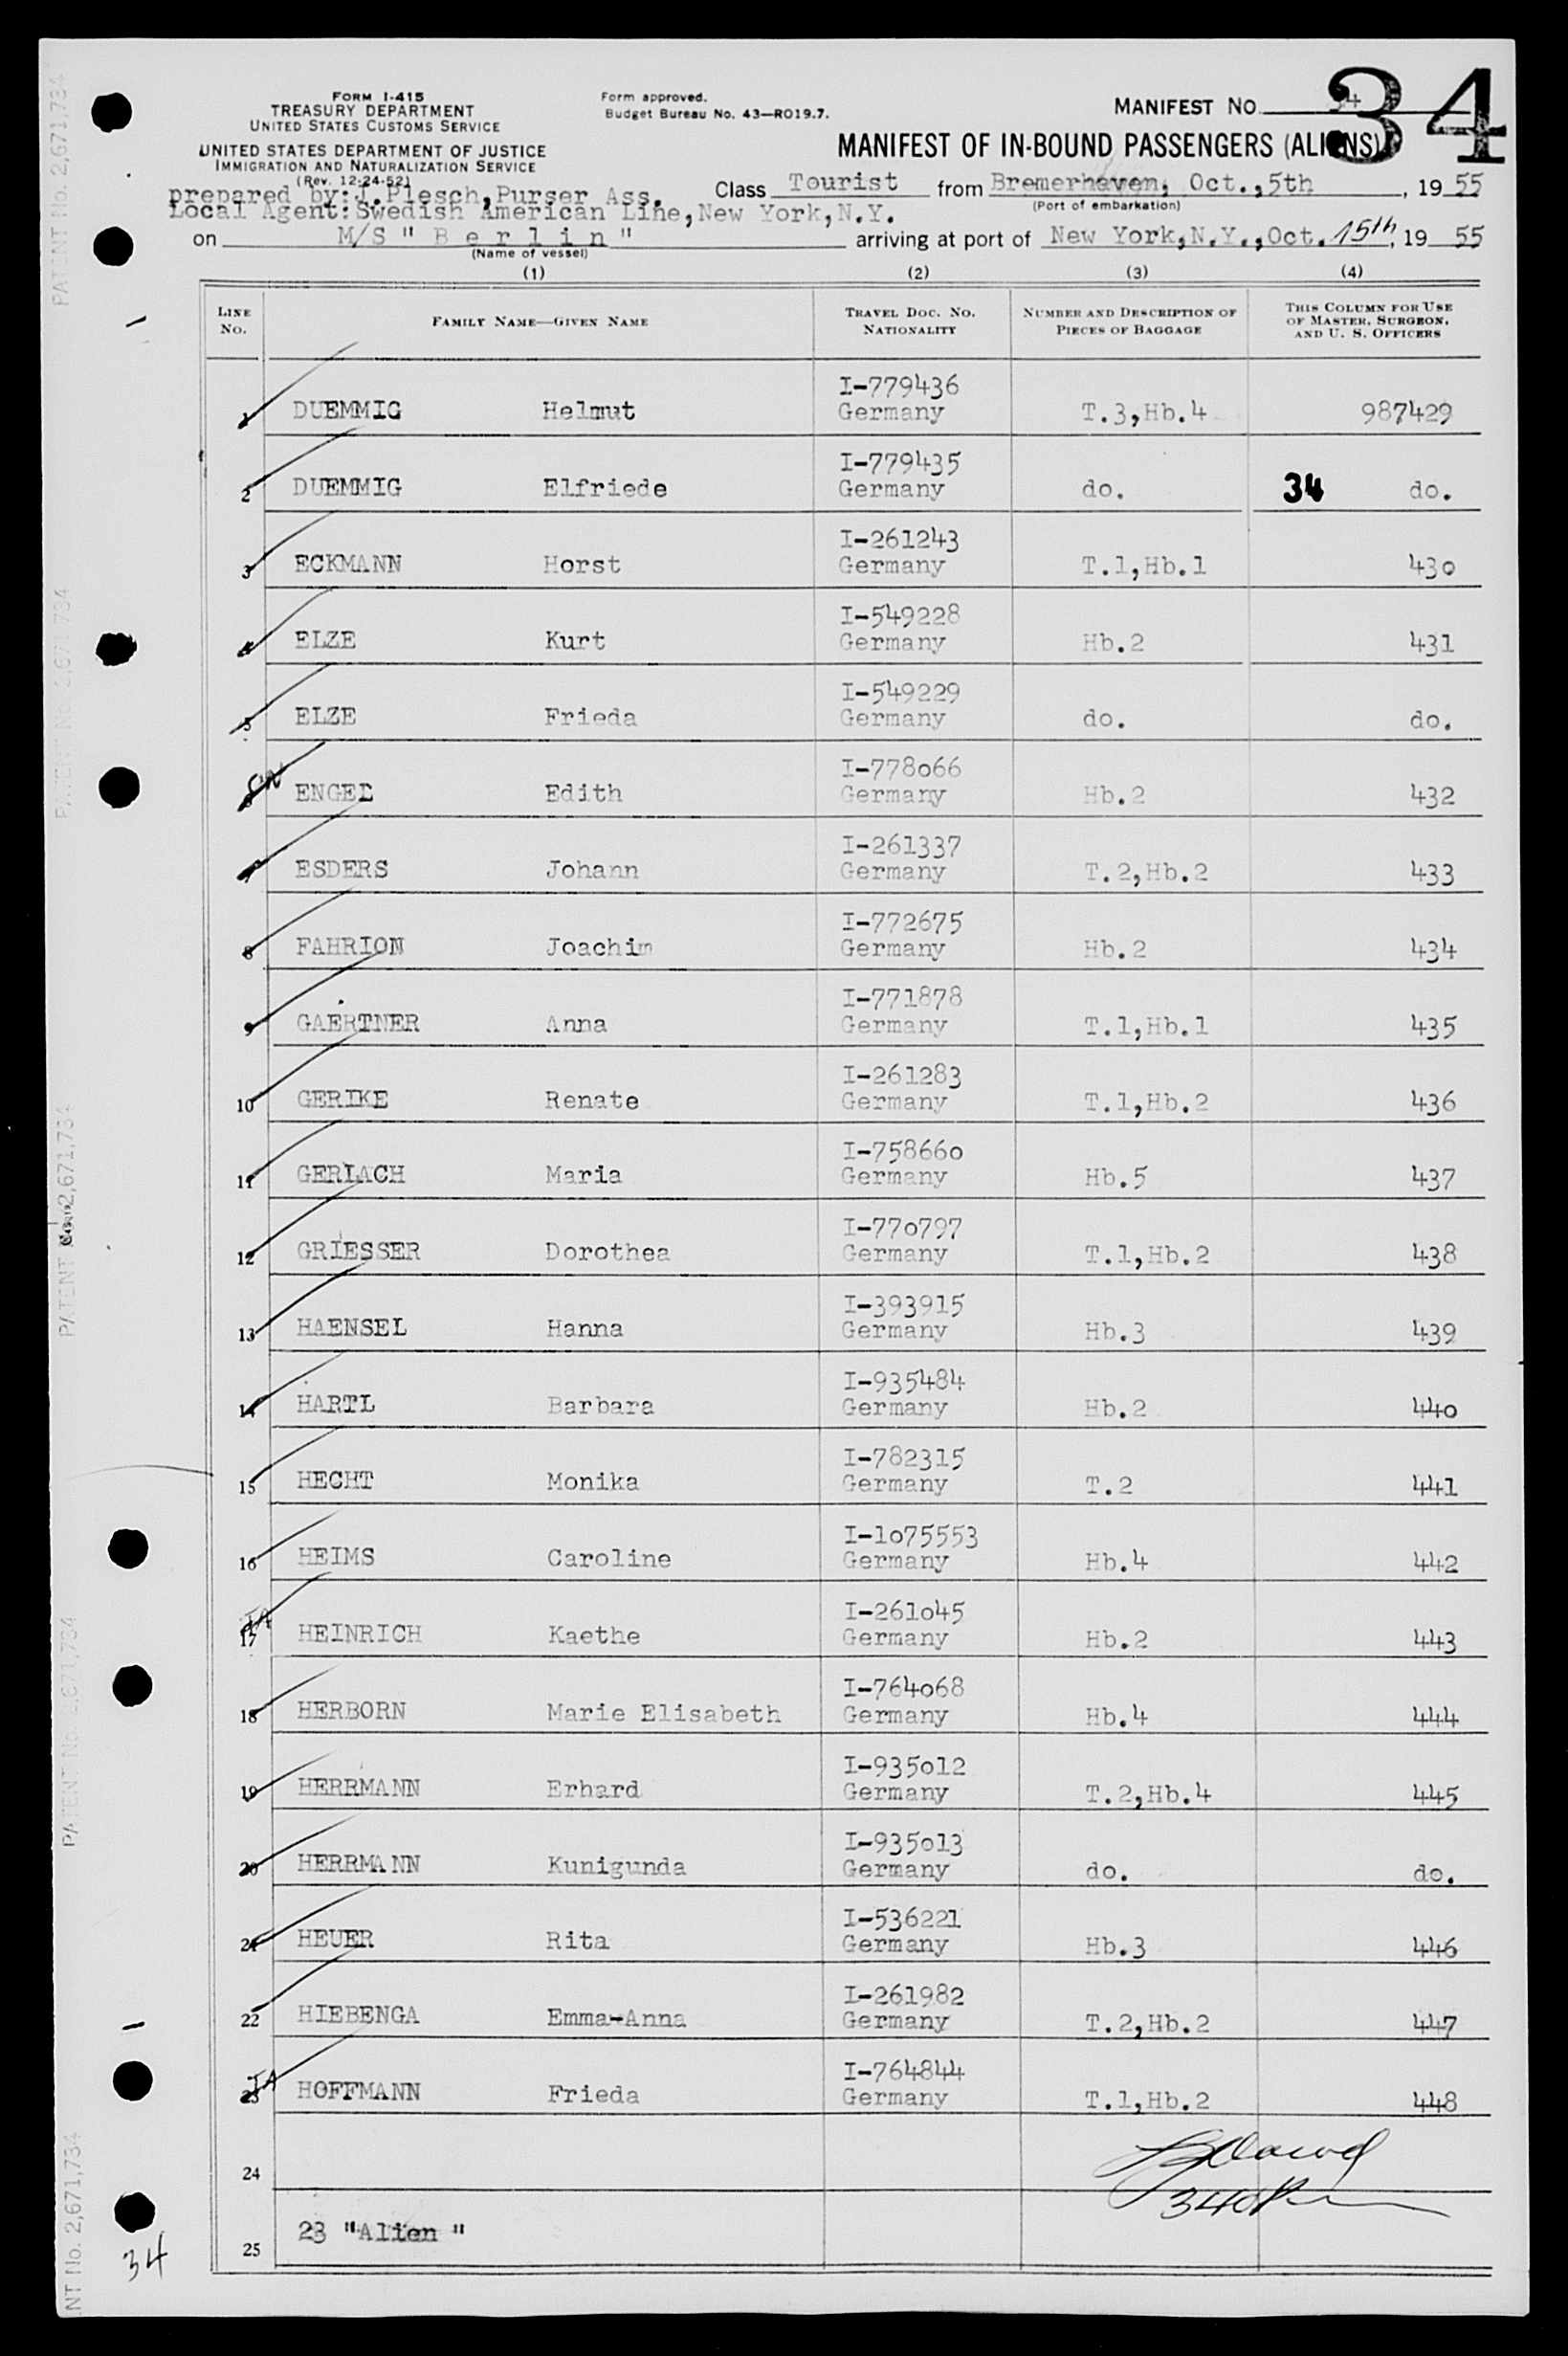 FORM I-415
TREASURY DEPARTMENT
UNITED STATES CUSTOMS SERVICE
UNITED STATES DEPARTMENT OF JUSTICE
IMMIGRATION AND NATURALIZATION SERVICE
(Rev. 12-24-52)
Form approved.
Budget Bureau No. 43—RO19.7.
MANIFEST NO. 34
34
MANIFEST OF IN-BOUND PASSENGERS (ALIENS)
prepared by:J.Plesch,Purser Ass.
Class Tourist from Bremerhaven, Oct.,5th, 19 55
(Port of embarkation)
Local Agent:Swedish American Line,New York,N.Y.
on M/S " B e r l i n " arriving at port of New York,N.Y.,Oct.15th, 19 55
(Name of vessel)
(1) (2) (3) (4)
LINE NO. FAMILY NAME—GIVEN NAME TRAVEL DOC. NO. NATIONALITY NUMBER AND DESCRIPTION OF PIECES OF BAGGAGE THIS COLUMN FOR USE OF MASTER, SURGEON, AND U. S. OFFICERS
I-779436
1 DUEMMIG Helmut Germany T.3,Hb.4 987429
I-779435
2 DUEMMIG Elfriede Germany do. 34 do.
I-261243
3 ECKMANN Horst Germany T.1,Hb.1 430
I-549228
4 ELZE Kurt Germany Hb.2 431
I-549229
5 ELZE Frieda Germany do. do.
I-778066
6 ENGEL Edith Germany Hb.2 432
I-261337
7 ESDERS Johann Germany T.2,Hb.2 433
I-772675
8 FAHRION Joachim Germany Hb.2 434
I-771878
9 GAERTNER Anna Germany T.1,Hb.1 435
I-261283
10 GERIKE Renate Germany T.1,Hb.2 436
I-758660
11 GERLACH Maria Germany Hb.5 437
I-770797
12 GRIESSER Dorothea Germany T.1,Hb.2 438
I-393915
13 HAENSEL Hanna Germany Hb.3 439
I-935484
14 HARTL Barbara Germany Hb.2 440
I-782315
15 HECHT Monika Germany T.2 441
I-1075553
16 HEIMS Caroline Germany Hb.4 442
I-261045
17 HEINRICH Kaethe Germany Hb.2 443
I-764068
18 HERBORN Marie Elisabeth Germany Hb.4 444
I-935012
19 HERRMANN Erhard Germany T.2,Hb.4 445
I-935013
20 HERRMANN Kunigunda Germany do. do.
I-536221
21 HEUER Rita Germany Hb.3 446
I-261982
22 HIEBENGA Emma-Anna Germany T.2,Hb.2 447
I-764844
23 HOFFMANN Frieda Germany T.1,Hb.2 448
24
23 "Alien "
25
34
PATENT No. 2,671,734
PATENT No. 2,671,734
PATENT No. 2,671,734
PATENT No. 2,671,734
NT No. 2,671,734